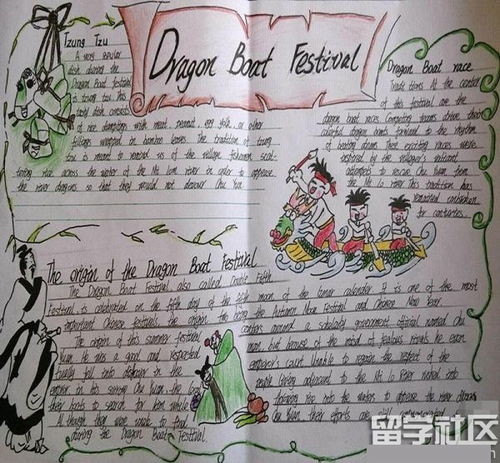 Dragon Boat Festival
Tzung Tzu
A very popular
dish during the
Dragon Boat festival
is tzung tzu. This
tasty dish consists
of rice dumplings with meat, peanut, egg yolk, or other
fillings wrapped in bamboo leaves. The tradition of tzung
tzu is meant to remind us of the village fishermen scat-
tering rice across the water of the Mi Low river in order to appease
the river dragons so that they would not devour Chu Yuan.
Dragon Boat race
Traditions At the center
of this festival are the
dragon boat races. Competing teams drive their
colorful dragon boats forward to the rhythm
of beating drums. These exciting races were
inspired by the villager's valiant
attempts to rescue Chu Yuan from
the Mi Lo river. This tradition has
remained unbroken
for centuries.
The origin of the Dragon Boat Festival
The Dragon Boat Festival, also called Double Fifth
Festival, is celebrated on the fifth day of the fifth moon of the lunar calendar. It is one of the most
important Chinese festivals, the Autumn Moon Festival and Chinese New Year.
The origins of this summer festival centers around a scholarly government official named Chu
Yuan. He was a good and respected man, but because of the of jealous rivals he
fell into in the emperor's court. Unable to regain the respect of the
emperor, in his sorrow Chu Yuan the Mi Lo River
their boats to search for him while throwing rice into the waters to appease the river dragons.
Although they were unable to find Chu Yuan, their efforts are still commemorated
during the Dragon Boat Festival.
留学社区